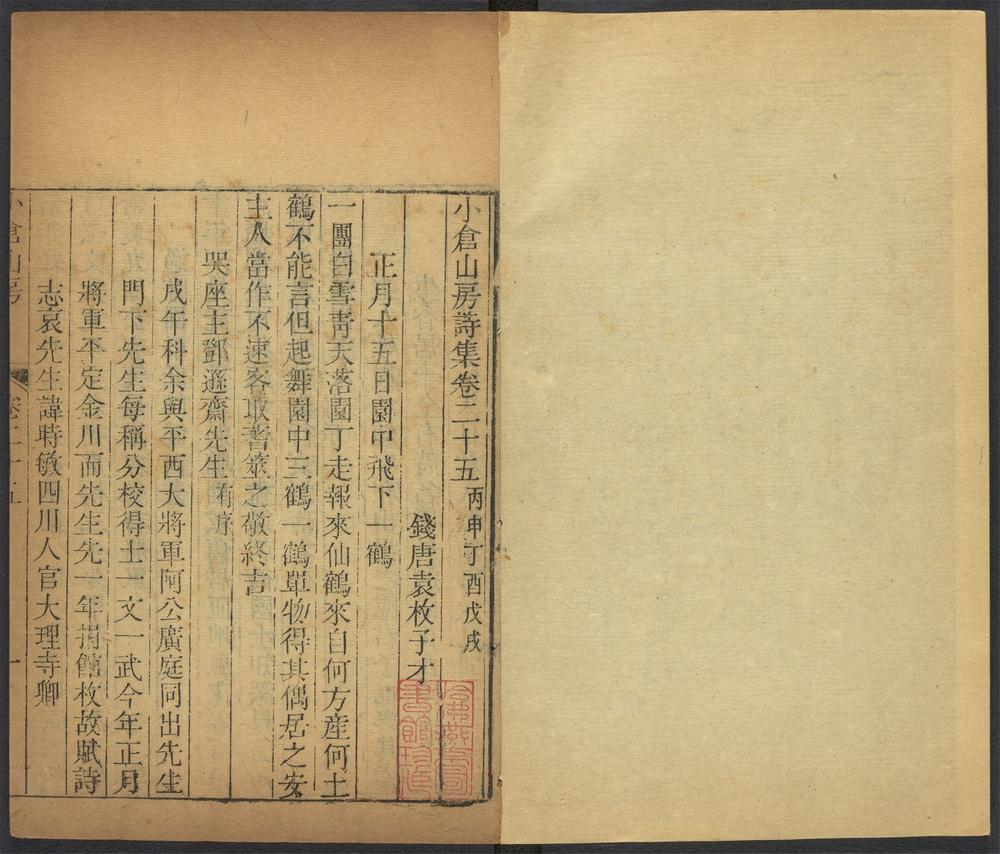 小倉山房詩集卷二十五 丙申丁酉戊戌
錢唐袁枚子才
正月十五日園中飛下一鶴
一團白雪靑天落園丁走報來仙鶴來自何方産何土
鶴不能言但起舞園中三鶴一鶴單物得其偶居之安
主人當作不速客取蓍筮之敬終吉
哭座主鄧遜齋先生 有序
戌午科余與平西大將軍阿公廣庭同出先生
門下先生每稱分校得士一文一武今年正月
將軍平定金川而先生先一年捐館枚故賦詩
志哀先生諱時敏四川人官大理寺卿
小倉山房 卷二十五 一
哈佛燕京圖書館珍藏